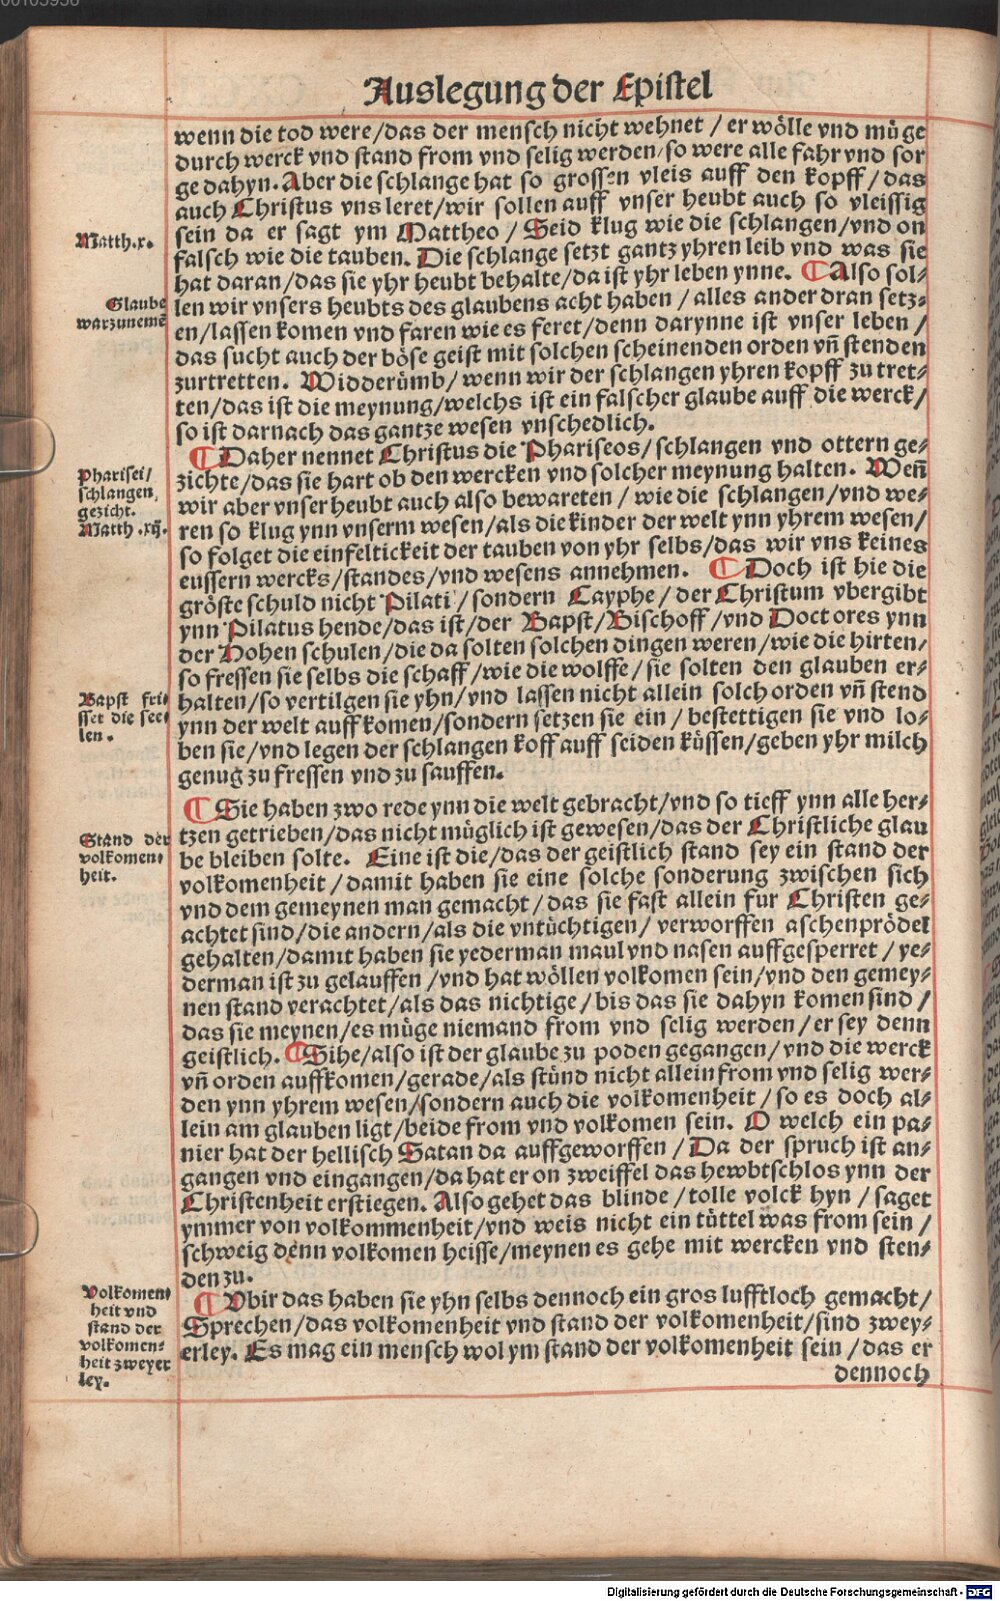 Auslegung der Epistel
wenn die tod were/das der mensch nicht wehnet / er wölle vnd müge
durch werck vnd stand from vnd selig werden/so were alle fahr vnd sor
ge dahyn. Aber die schlange hat so grossen vleis auff den kopff/das
auch Christus vns leret/wir sollen auff vnser heubt auch so vleissig
Matth.x.
sein da er sagt ym Mattheo / Seid klug wie die schlangen/vnd on
falsch wie die tauben. Die schlange setzt gantz yhren leib vnd was sie
hat daran/das sie yhr heubt behalte/da ist yhr leben ynne. ¶ Also sol⸗
Glaube
warzunemē
len wir vnsers heubts des glaubens acht haben / alles ander dran setz⸗
en/lassen komen vnd faren wie es feret/denn darynne ist vnser leben /
das sucht auch der böse geist mit solchen scheinenden orden vn̄ stenden
zurtretten. Widderümb/ wenn wir der schlangen yhren kopff zu tret⸗
ten/das ist die meynung/welchs ist ein falscher glaube auff die werck/
so ist darnach das gantze wesen vnschedlich.
¶ Daher nennet Christus die Phariseos/schlangen vnd ottern ge⸗
Pharisei/
schlangen,
gezicht.
Matth .xij.
zichte/das sie hart ob den wercken vnd solcher meynung halten. Wen̄
wir aber vnser heubt auch also bewareten / wie die schlangen/vnd we⸗
ren so klug ynn vnserm wesen/als die kinder der welt ynn yhrem wesen/
so folget die einfeltickeit der tauben von yhr selbs/das wir vns keines
eussern wercks/standes/vnd wesens annehmen. ¶ Doch ist hie die
gröste schuld nicht Pilati / sondern Cayphe / der Christum vbergibt
ynn Pilatus hende/das ist/der Bapst/Bischoff/vnd Doctores ynn
der Hohen schulen/die da solten solchen dingen weren/wie die hirten/
so fressen sie selbs die schaff/wie die wolffe/sie solten den glauben er⸗
Bapst fri⸗
sset die see⸗
len.
halten/so vertilgen sie yhn/vnd lassen nicht allein solch orden vn̄ stend
ynn der welt auffkomen/sondern setzen sie ein / bestettigen sie vnd lo⸗
ben sie/vnd legen der schlangen koff auff seiden küssen/geben yhr milch
genug zu fressen vnd zu sauffen.
¶ Sie haben zwo rede ynn die welt gebracht/vnd so tieff ynn alle her⸗
Stand der
volkomen⸗
heit.
tzen getrieben/das nicht müglich ist gewesen/das der Christliche glau
be bleiben solte. Eine ist die/das der geistlich stand sey ein stand der
volkomenheit / damit haben sie eine solche sonderung zwischen sich
vnd dem gemeynen man gemacht / das sie fast allein fur Christen ge⸗
achtet sind/die andern/als die vntüchtigen / verworffen aschenprödel
gehalten/damit haben sie yederman maul vnd nasen auffgesperret / ye⸗
derman ist zu gelauffen /vnd hat wöllen volkomen sein/vnd den gemey⸗
nen stand verachtet/als das nichtige/bis das sie dahyn komen sind /
das sie meynen/es müge niemand from vnd selig werden/er sey denn
geistlich. ¶ Sihe/also ist der glaube zu poden gegangen/vnd die werck
vn̄ orden auffkomen/gerade/als stünd nicht allein from vnd selig wer⸗
den ynn yhrem wesen/sondern auch die volkomenheit / so es doch al⸗
lein am glauben ligt/beide from vnd volkomen sein. O welch ein pa⸗
nier hat der hellisch Satan da auffgeworffen / Da der spruch ist an⸗
gangen vnd eingangen/da hat er on zweiffel das hewbtschlos ynn der
Christenheit erstiegen. Also gehet das blinde /tolle volck hyn / saget
ymmer von volkommenheit/vnd weis nicht ein tüttel was from sein /
schweig denn volkomen heisse/meynen es gehe mit wercken vnd sten⸗
den zu.
Volkomen⸗
heit vnd
stand der
volkomen⸗
heit zweyer
ley.
¶ Vbir das haben sie yhn selbs dennoch ein gros lufftloch gemacht/
Sprechen/das volkomenheit vnd stand der volkomenheit/sind zwey⸗
erley. Es mag ein mensch wol ym stand der volkomenheit sein /das er
dennoch
Digitalisierung gefördert durch die Deutsche Forschungsgemeinschaft - DFG